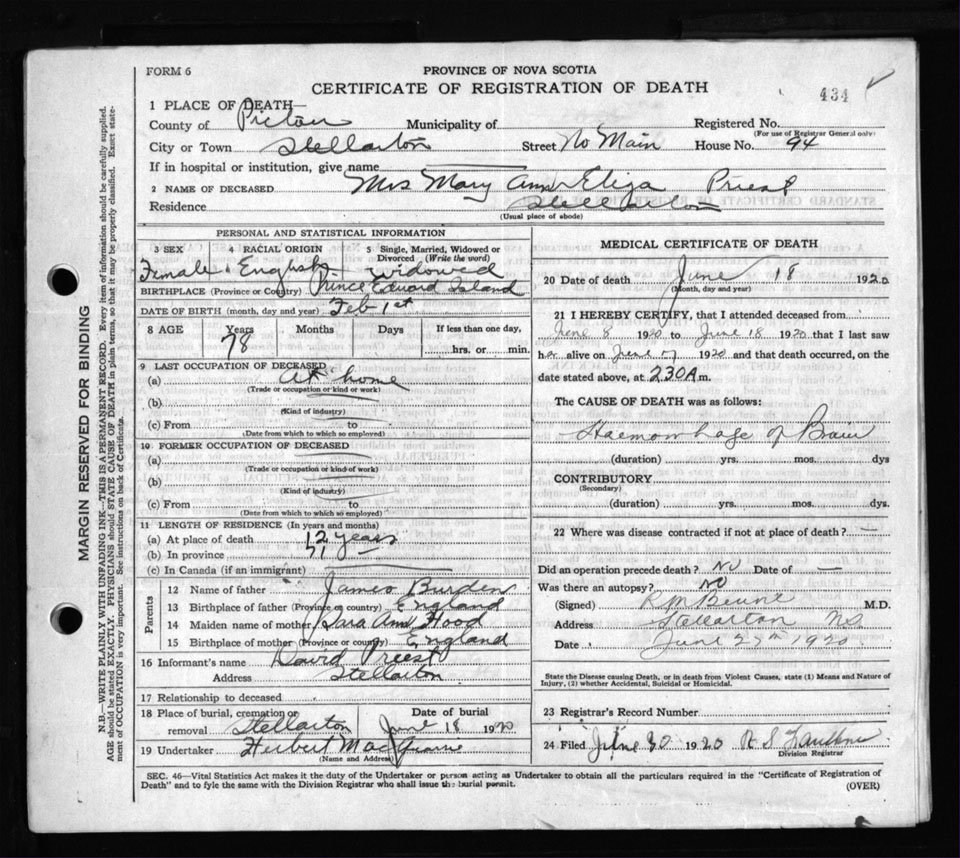 FORM 6
PROVINCE OF NOVA SCOTIA
CERTIFICATE OF REGISTRATION OF DEATH
434
1 PLACE OF DEATH—
County of Pictou Municipality of Registered No.
(For use of Registrar General only)
City or Town Stellarton Street No Main House No. 94
If in hospital or institution, give name
2 NAME OF DECEASED Mrs Mary Ann Eliza Priest
Residence Stellarton
(Usual place of abode)
PERSONAL AND STATISTICAL INFORMATION
3 SEX 4 RACIAL ORIGIN 5 Single, Married, Widowed or Divorced (Write the word)
Female English widowed
BIRTHPLACE (Province or County) Prince Edward Island
DATE OF BIRTH (month, day and year) Feb 1st
8 AGE Years Months Days If less than one day,
78 hrs. or min.
9 LAST OCCUPATION OF DECEASED
(a) At home
(Trade or occupation or kind of work)
(b)
(Kind of industry)
(c) From to
(Date from which to which so employed)
10 FORMER OCCUPATION OF DECEASED
(a)
(Trade or occupation or kind of work)
(b)
(Kind of industry)
(c) From to
(Date from which to which so employed)
11 LENGTH OF RESIDENCE (In years and months)
(a) At place of death 12 years
(b) In province 71 —
(c) In Canada (if an immigrant)
Parents
12 Name of father James Burden
13 Birthplace of father (Province or country) England
14 Maiden name of mother Sara Ann Hood
15 Birthplace of mother (Province or country) England
16 Informant's name David Priest
Address Stellarton
17 Relationship to deceased
18 Place of burial, cremation or removal Stellarton Date of burial June 18 1920
19 Undertaker Herbert
(Name and Address)
MEDICAL CERTIFICATE OF DEATH
20 Date of death June 18 1920
(Month, day and year)
21 I HEREBY CERTIFY, that I attended deceased from
June 8 1920 to June 18 1920 that I last saw
her alive on June 17 1920 and that death occurred, on the
date stated above, at 230 A m.
The CAUSE OF DEATH was as follows:
Haemorrhage of Brain
(duration) yrs. mos. dys
CONTRIBUTORY
(Secondary)
(duration) yrs. mos. dys.
22 Where was disease contracted if not at place of death? —
Did an operation precede death? No Date of —
Was there an autopsy? No
(Signed) R M M.D.
Address Stellarton NS
Date June 1920
State the Disease causing Death, or in death from Violent Causes, state (1) Means and Nature of
Injury, (2) whether Accidental, Suicidal or Homicidal.
23 Registrar's Record Number
24 Filed June 30 1920 R S
Division Registrar
SEC. 46—Vital Statistics Act makes it the duty of the Undertaker or person acting as Undertaker to obtain all the particulars required in the "Certificate of Registration of
Death" and to fyle the same with the Division Registrar who shall issue the burial permit.
(OVER)
MARGIN RESERVED FOR BINDING
N.B.—WRITE PLAINLY WITH UNFADING INK—THIS IS A PERMANENT RECORD. Every item of information should be carefully supplied.
AGE should be stated EXACTLY. PHYSICIANS should STATE CAUSE OF DEATH in plain terms, so that it may be properly classified. Exact state-
ment of OCCUPATION is very important. See instructions on back of Certificate